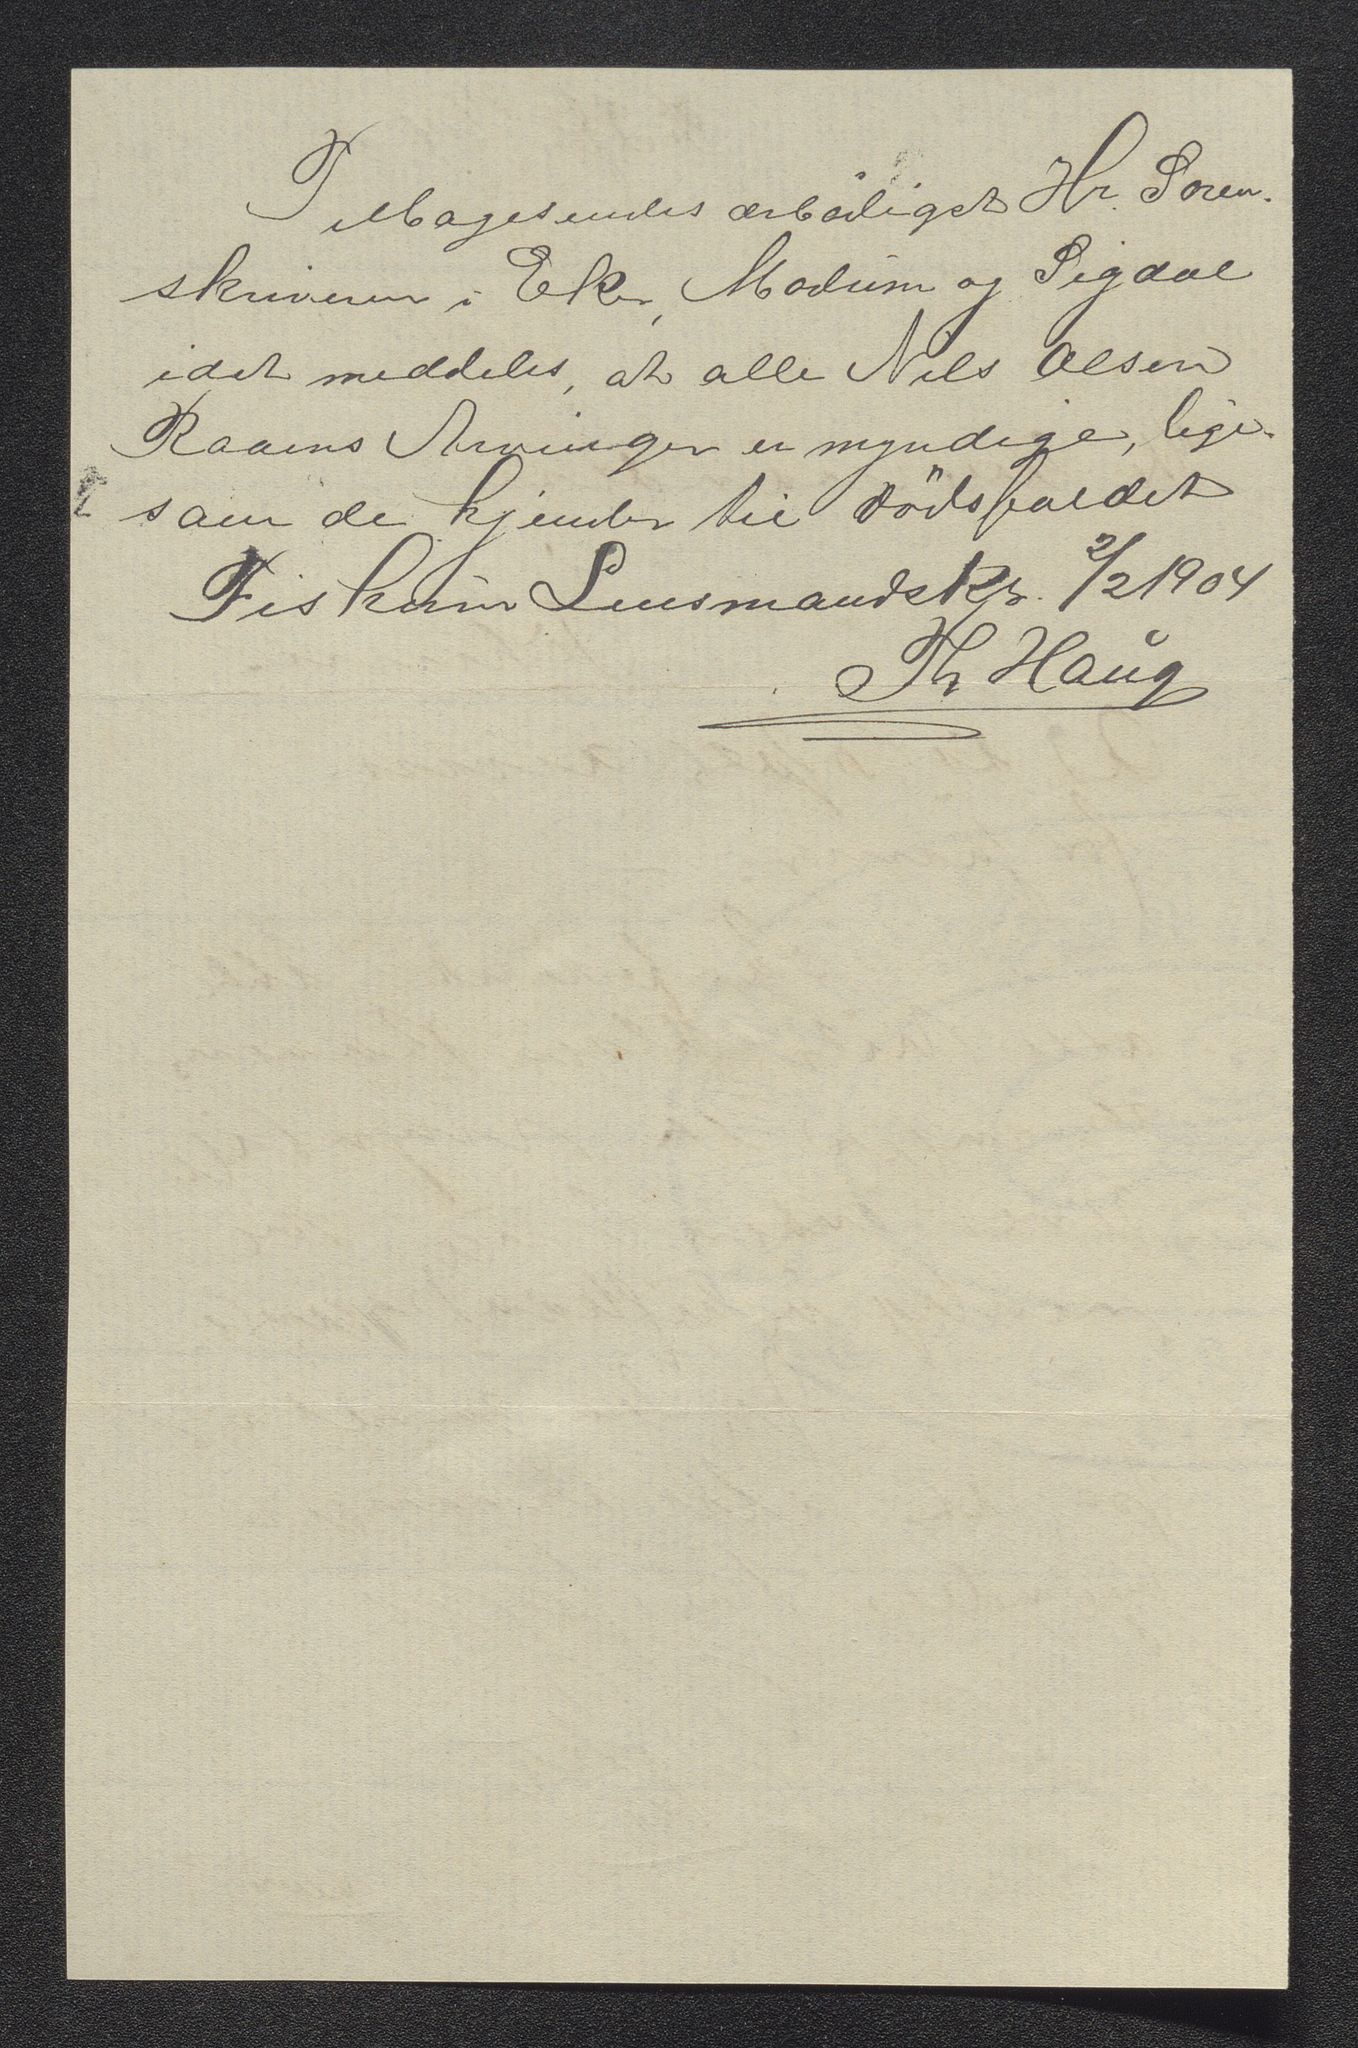 Tilbagesendes ærbödigst Hr. Soren-
skriveren i Eker, Modum og Sigdal
idet meddeles, at alle Nils Olsen
Raaens Arvinger er myndige, lige-
som de kjender til dödsfaldet
Fiskum Lensmandskp. 2/2 1904
Th Haug